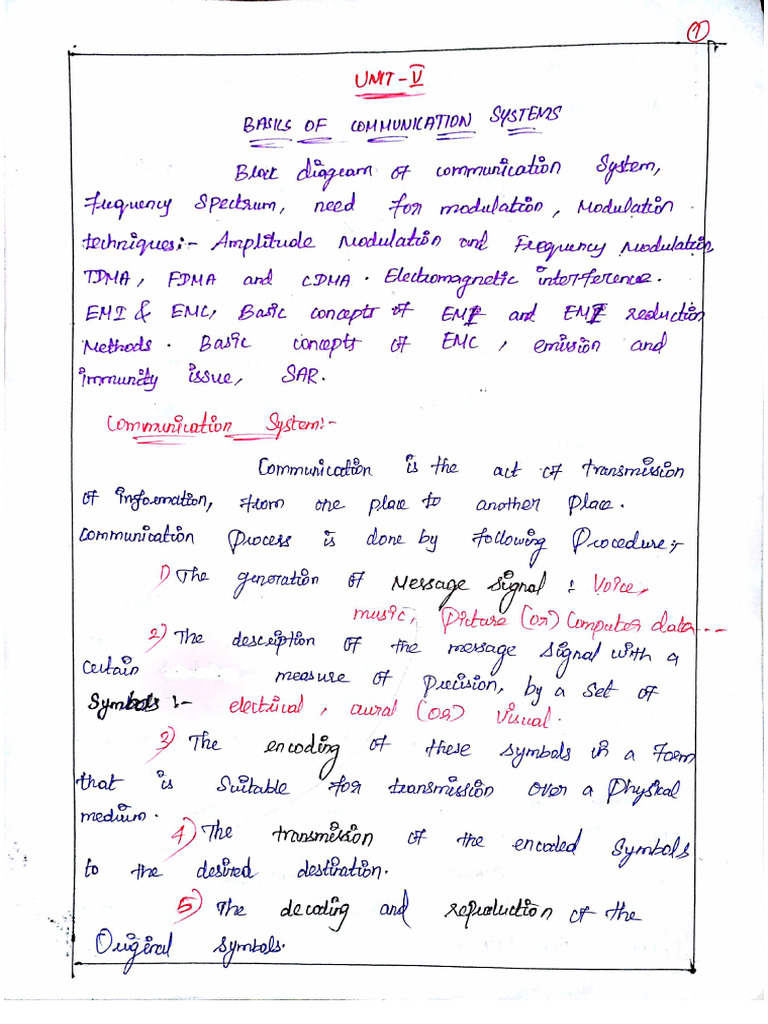 1
UNIT-V
BASICS OF COMMUNICATION SYSTEMS
Block diagram of communication System,
frequency Spectrum, need for modulation, Modulation
techniques:- Amplitude Modulation and Frequency Modulation,
TDMA, FDMA and CDMA. Electromagnetic interference.
EMI & EMC, Basic concepts of EMI and EMI reduction
Methods. Basic concepts of EMC, emission and
immunity issue, SAR.
Communication System:-
Communication is the act of transmission
of information, from one place to another place.
Communication Process is done by following Procedure:-
1) The generation of Message Signal : Voice,
music, Picture (or) Computer data...
2) The description of the message signal with a
certain measure of Precision, by a set of
Symbols :- electrical, aural (or) visual.
3) The encoding of these symbols in a Form
that is Suitable for transmission over a Physical
medium.
4) The transmission of the encoded Symbols
to the desired destination.
5) The decoding and reproduction of the
Original symbols.